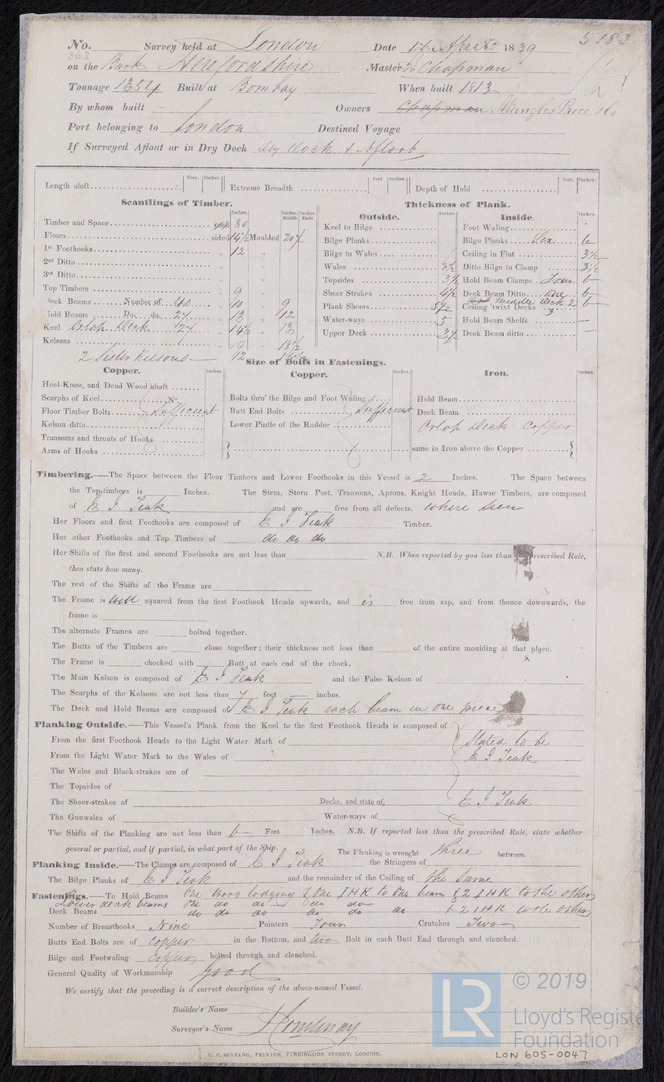 No. Survey held at London Date 1839
5183
363
on the Bark Herefordshire Master Chapman
Tonnage 1354 Built at Bombay When built 1813
By whom built - Owners Chapman Mangles Price & Co
Port belonging to London Destined Voyage
If Surveyed Afloat or in Dry Dock Dry Dock & Afloat
Feet. Inches. Feet. Inches. Feet. Inches.
Length aloft Extreme Breadth Depth of Hold
Scantlings of Timber. Thickness of Plank.
Outside. Inside.
Timber and Space 30 Keel to Bilge Foot Waling
Floors sided 14½ Moulded Bilge Planks Bilge Planks 6
1st Foothooks 12 Bilge to Wales Ceiling in Flat 3½
2nd Ditto Wales 3½ Ditto Bilge to Clamp 3½
3rd Ditto Topsides 3½ Hold Beam Clamps Four 6
Top Timbers 9 Sheer Strakes 4½ Deck Beam Ditto 6
Deck Beams Number of 40 10 9 Plank Sheers Ceiling 'twixt Decks 3
Hold Beams Do. do. 27 13 12 Water-ways 5 Hold Beam Shelfs
Keel Orlop Deck 27 14½ 13 Upper Deck 3½ Deck Beam ditto
Kelsons 19 18½
2 Sister Kelsons 12
Size of Bolts in Fastenings.
Copper. Copper. Iron.
Heel-Knee, and Dead Wood abaft
Scarphs of Keel Bolts thro' the Bilge and Foot Waling Hold Beam
Floor Timber Bolts Sufficient Butt End Bolts Sufficient Deck Beam
Kelson ditto Lower Pintle of the Rudder Orlop Deck Copper
Transoms and throats of Hooks
Arms of Hooks same in Iron above the Copper
Timbering.—The Space between the Floor Timbers and Lower Foothooks in this Vessel is 2 Inches. The Space between
the Top-timbers is Inches. The Stem, Stern Post, Transoms, Aprons, Knight Heads, Hawse Timbers, are composed
of E I Teak and are free from all defects. where seen
Her Floors and first Foothooks are composed of E I Teak Timber.
Her other Foothooks and Top Timbers of do do do
Her Shifts of the first and second Foothooks are not less than N.B. When reported by you less than prescribed Rule,
then state how many.
The rest of the Shifts of the Frame are
The Frame is well squared from the first Foothook Heads upwards, and is free from sap, and from thence downwards, the
frame is
The alternate Frames are bolted together.
The Butts of the Timbers are close together; their thickness not less than of the entire moulding at that place.
The Frame is chocked with Butt at each end of the chock.
The Main Kelson is composed of E I Teak and the False Kelson of
The Scarphs of the Kelsons are not less than 7 feet inches.
The Deck and Hold Beams are composed of E I Teak each beam in one piece
Planking Outside.—This Vessel's Plank from the Keel to the first Foothook Heads is composed of
From the first Foothook Heads to the Light Water Mark of Stated to be
From the Light Water Mark to the Wales of E I Teak
The Wales and Black-strakes are of
The Topsides of
The Sheer-strakes of Decks, and state of, E I Teak
The Gunwales of Water-ways of
The Shifts of the Planking are not less than 6 Feet Inches. N.B. If reported less than the prescribed Rule, state whether
general or partial, and if partial, in what part of the Ship. The Planking is wrought three between.
Planking Inside.—The Clamps are composed of E I Teak the Stringers of
The Bilge Planks of E I Teak and the remainder of the Ceiling of the same
Fastenings.—To Hold Beams One wood lodging & One I H K to one beam & 2 I H K to the other
Lower deck beams One do do do do
Deck Beams do do do do do & 2 I H K to the other
Number of Breasthooks Nine Pointers Four Crutches Two
Butts End Bolts are of copper in the Bottom, and two Bolt in each Butt End through and clenched.
Bilge and Footwaling copper bolted through and clenched.
General Quality of Workmanship Good
We certify that the preceding is a correct description of the above-named Vessel.
Builder's Name
Surveyor's Name
C. F. SEYFANG, PRINTER, FARRINGDON STREET, LONDON.
LR © 2019
Lloyd's Register
Foundation
LON 605-0047